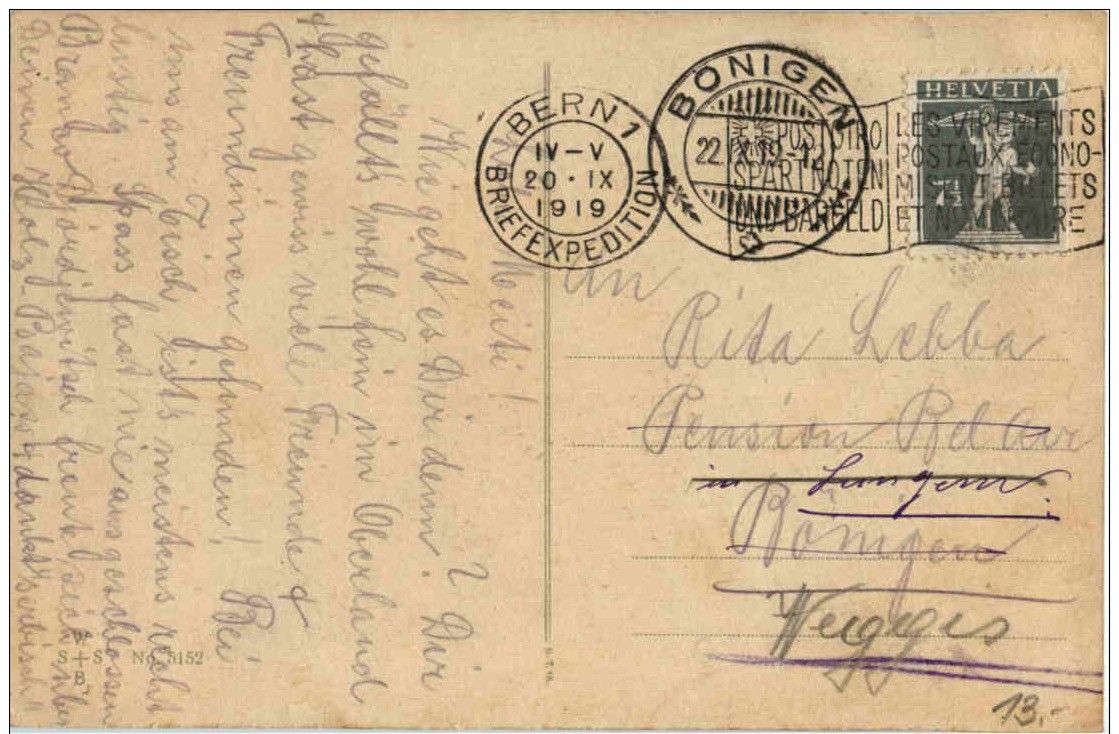 Meiti!
Wie geht es Dir denn? Dir
gefällts wohl fein im Oberland
& hast gewiss viele Freunde &
Freundinnen gefunden! Bei
uns am Tisch ists meistens recht
lustig Spass fast nie ausgeschlossen
Deinen Holz-Bajazz
BERN 1
IV-V
20·IX
1919
BRIEFEXPEDITION
BÖNIGEN
22. IX. 19-1
POSTGIRO
SPART NOTEN
UND BARGELD
LES VIREMENTS
POSTAUX ECONO-
MISENT BILLETS
ET NUMERAIRE
HELVETIA
7½
An
Rita Labba
Pension Bel Air
in Lungern
Bönigen
Weggis
S+S
B
No. 5152
13.-